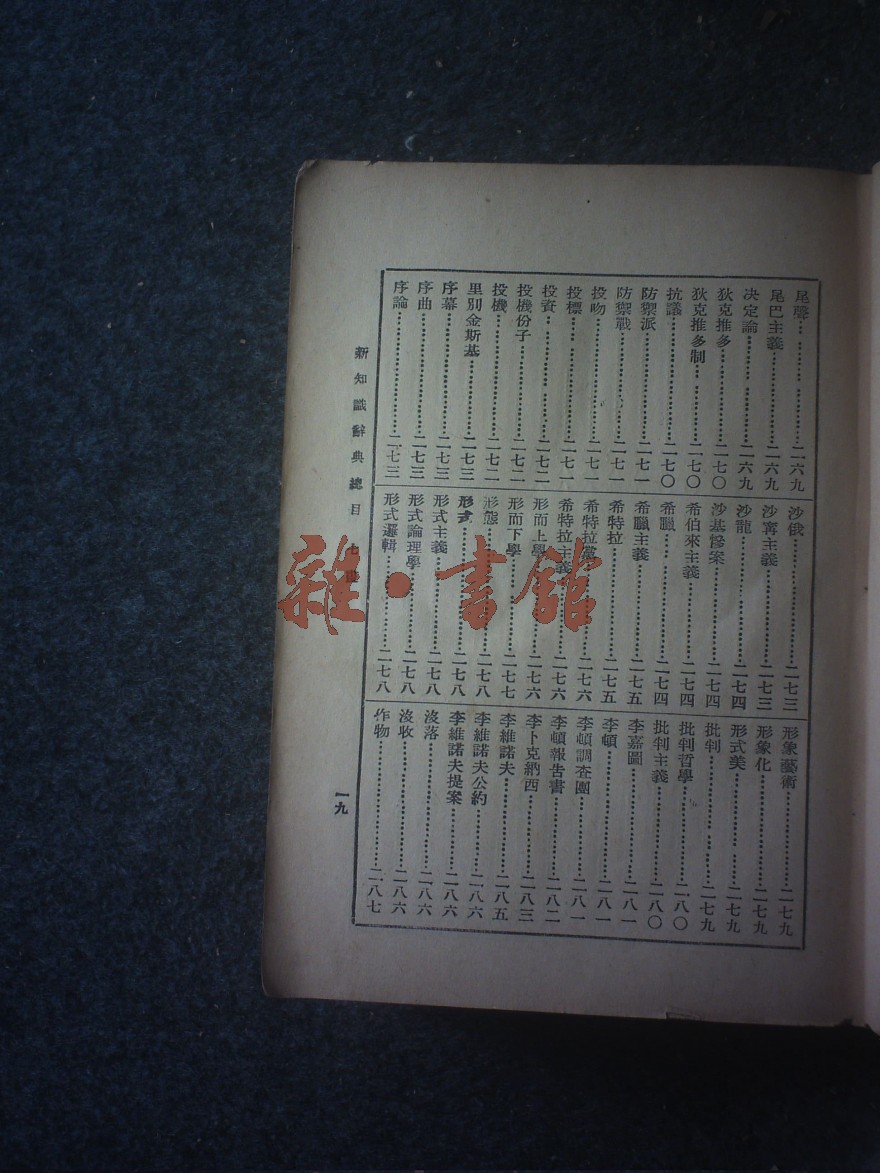 尾聲 二六九
尾巴主義 二六九
決定論 二六九
狄克推多 二七〇
狄克推多制 二七〇
抗議 二七〇
防禦派 二七一
防禦戰 二七一
投吻 二七一
投標 二七一
投資 二七二
投機份子 二七二
投機 二七二
里別金斯基 二七三
序幕 二七三
序曲 二七三
序論 二七三
沙俄 二七三
沙甯主義 二七三
沙龍 二七四
沙基慘案 二七四
希伯來主義 二七四
希臘 二七四
希臘主義 二七五
希特拉 二七五
希特拉黨 二七六
希特拉主義 二七六
形而上學 二七六
形而下學 二七七
形態 二七八
形式 二七八
形式主義 二七八
形式論理學 二七八
形式邏輯 二七八
形象藝術 二七九
形象化 二七九
形式美 二七九
批判 二七九
批判哲學 二八〇
批判主義 二八〇
李嘉圖 二八一
李頓 二八一
李頓調查團 二八一
李頓報告書 二八二
李卜克納西 二八三
李維諾夫 二八五
李維諾夫公約 二八六
李維諾夫提案 二八六
沒落 二八六
沒收 二八六
作物 二八七
新知識辭典 總目 七畫
一九
雜·書館